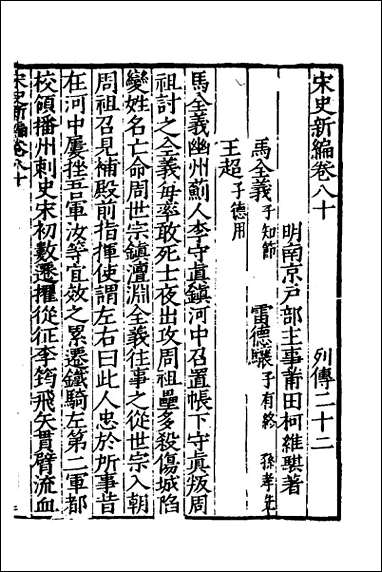 宋史新編卷八十
列傳二十二
明南京戸部主事莆田柯維騏著
馬全義 子知節
雷德驤 子有終 孫孝先
王超 子德用
馬全義幽州薊人李守眞鎮河中召置帳下守眞叛周
祖討之全義每率敢死士夜出攻周祖壘多殺傷城陷
變姓名亡命周世宗鎮澶淵全義往事之從世宗入朝
周祖召見補殿前指揮使謂左右曰此人忠於所事昔
在河中屢挫吾軍汝等宜效之累遷鐵騎左第二軍都
校領播州刺史宋初數遷擢從征李筠飛矢貫臂流血
宋史新編卷八十
一